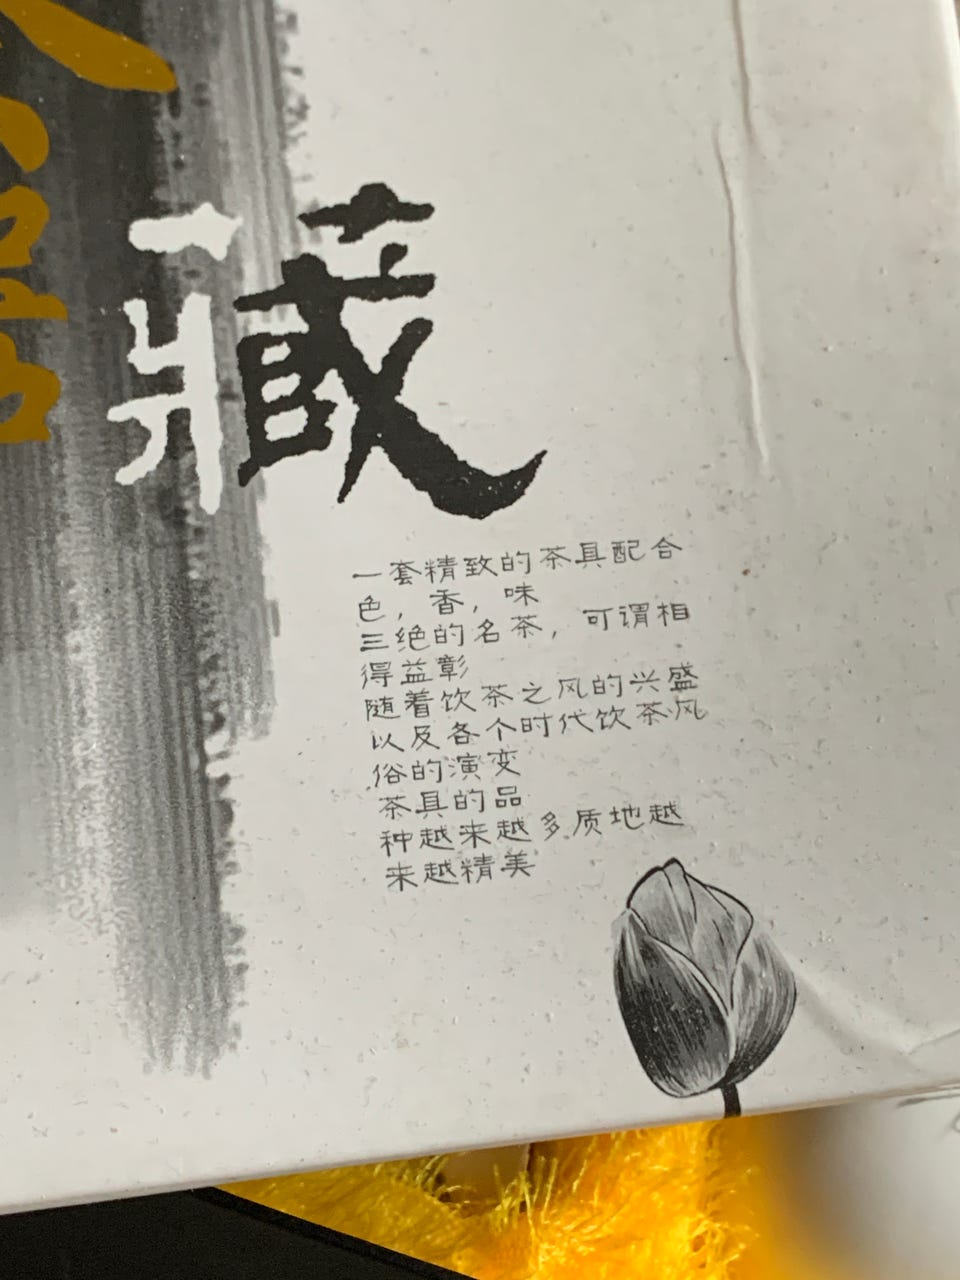 藏
一套精致的茶具配合
色，香，味
三绝的名茶，可谓相
得益彰
随着饮茶之风的兴盛
以及各个时代饮茶风
俗的演变
茶具的品
种越来越多质地越
来越精美